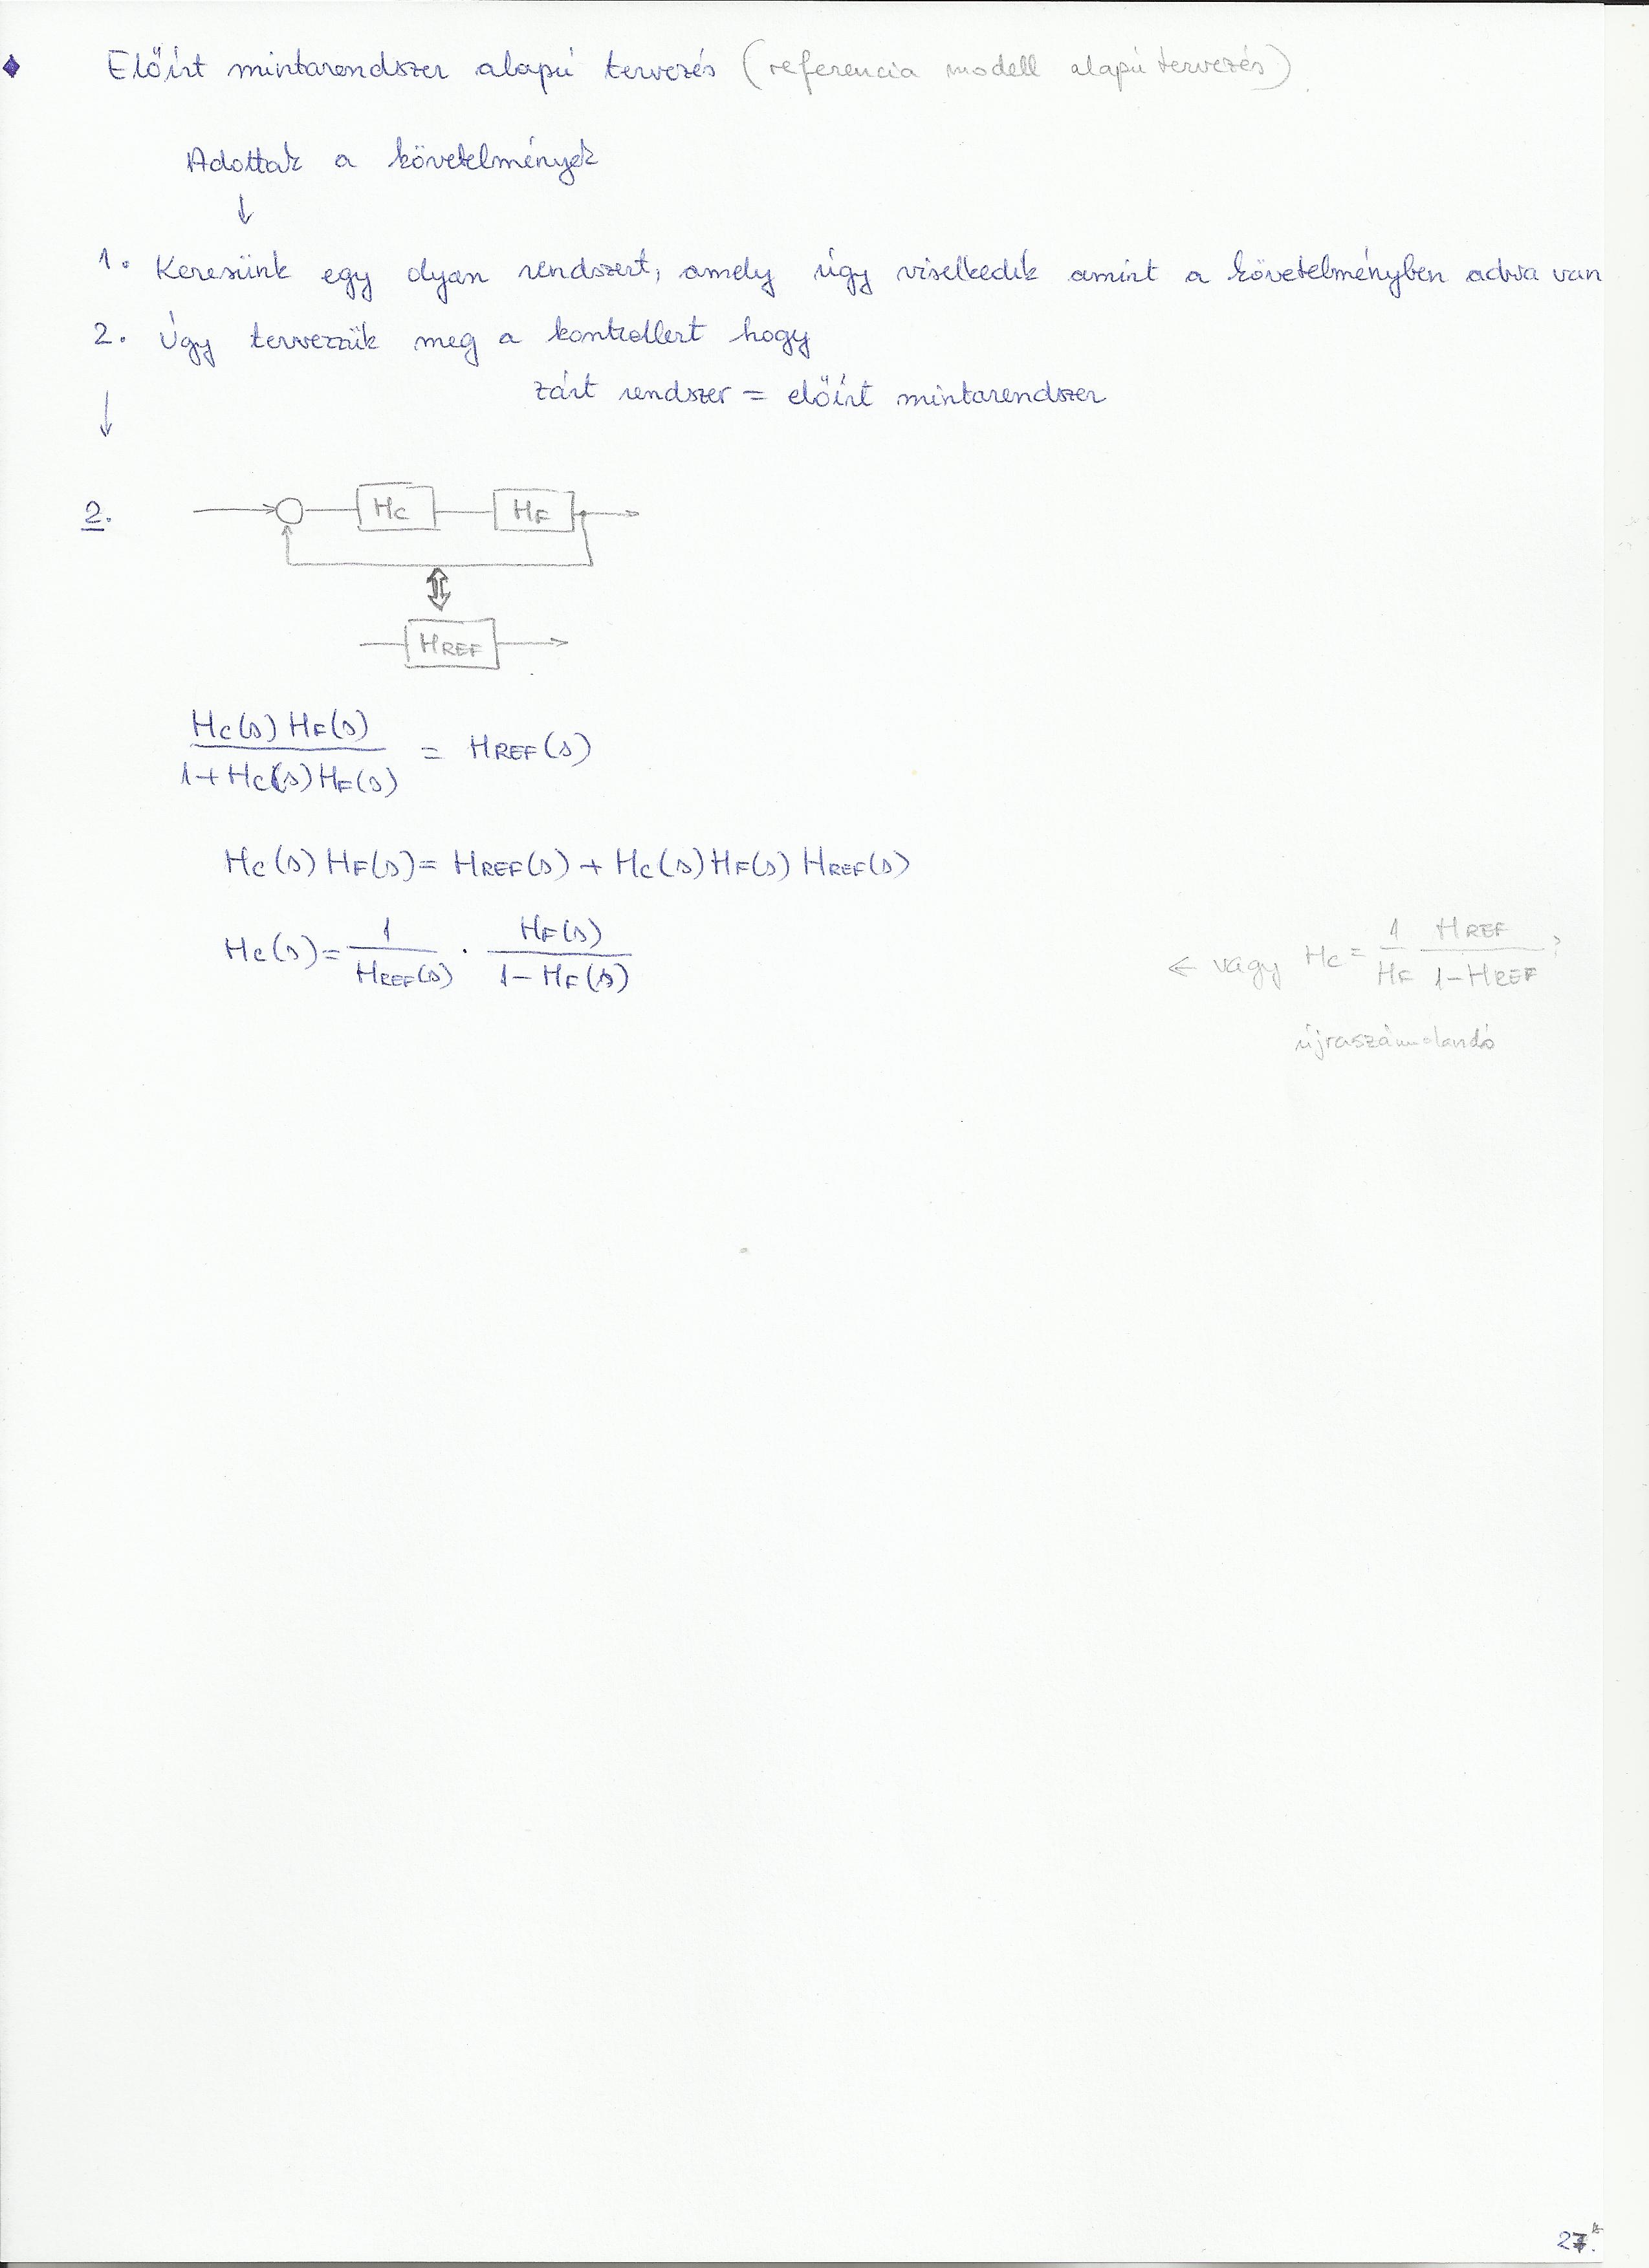 Előírt mintarendszer alapú tervezés (referencia modell alapú tervezés)
Adottak a követelmények
↓
1. Keresünk egy olyan rendszert, amely úgy viselkedik amint a követelményben adva van
2. Úgy tervezzük meg a kontrollert hogy
zárt rendszer = előírt mintarendszer
↓
2.
HC HF
HREF
HC(s) HF(s) / 1+HC(s)HF(s) = HREF(s)
HC(s) HF(s) = HREF(s) + HC(s) HF(s) HREF(s)
HC(s) = 1 / HREF(s) · HF(s) / 1 - HF(s)
← vagy HC = 1 / HF HREF / 1-HREF ?
újraszámolandó
27.